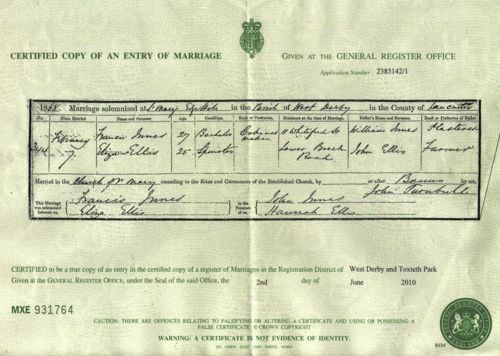 CERTIFIED COPY OF AN ENTRY OF MARRIAGE
GIVEN AT THE GENERAL REGISTER OFFICE
Application Number 2385142/1
Marriage solemnized at in the Parish of West Derby in the County of Lancaster
No. When Married Name and Surname Age Condition Rank or Profession Residence at the time of Marriage Father's Name and Surname Rank or Profession of Father
February Francis Innes 27 Bachelor William Innes Plasterer
7 Eliza Ellis 25 Spinster Lower Breck Road John Ellis Farmer
Married in the Church of St Mary according to the Rites and Ceremonies of the Established Church, by or after Banns by me,
John Turnbull
This Marriage was solemnized between us, Francis Innes Eliza Ellis in the Presence of us, John Innes Hannah Ellis
CERTIFIED to be a true copy of an entry in the certified copy of a register of Marriages in the Registration District of West Derby and Toxteth Park
Given at the GENERAL REGISTER OFFICE, under the Seal of the said Office, the 2nd day of June 2010
MXE 931764
CAUTION: THERE ARE OFFENCES RELATING TO FALSIFYING OR ALTERING A CERTIFICATE AND USING OR POSSESSING A
FALSE CERTIFICATE © CROWN COPYRIGHT
WARNING: A CERTIFICATE IS NOT EVIDENCE OF IDENTITY.